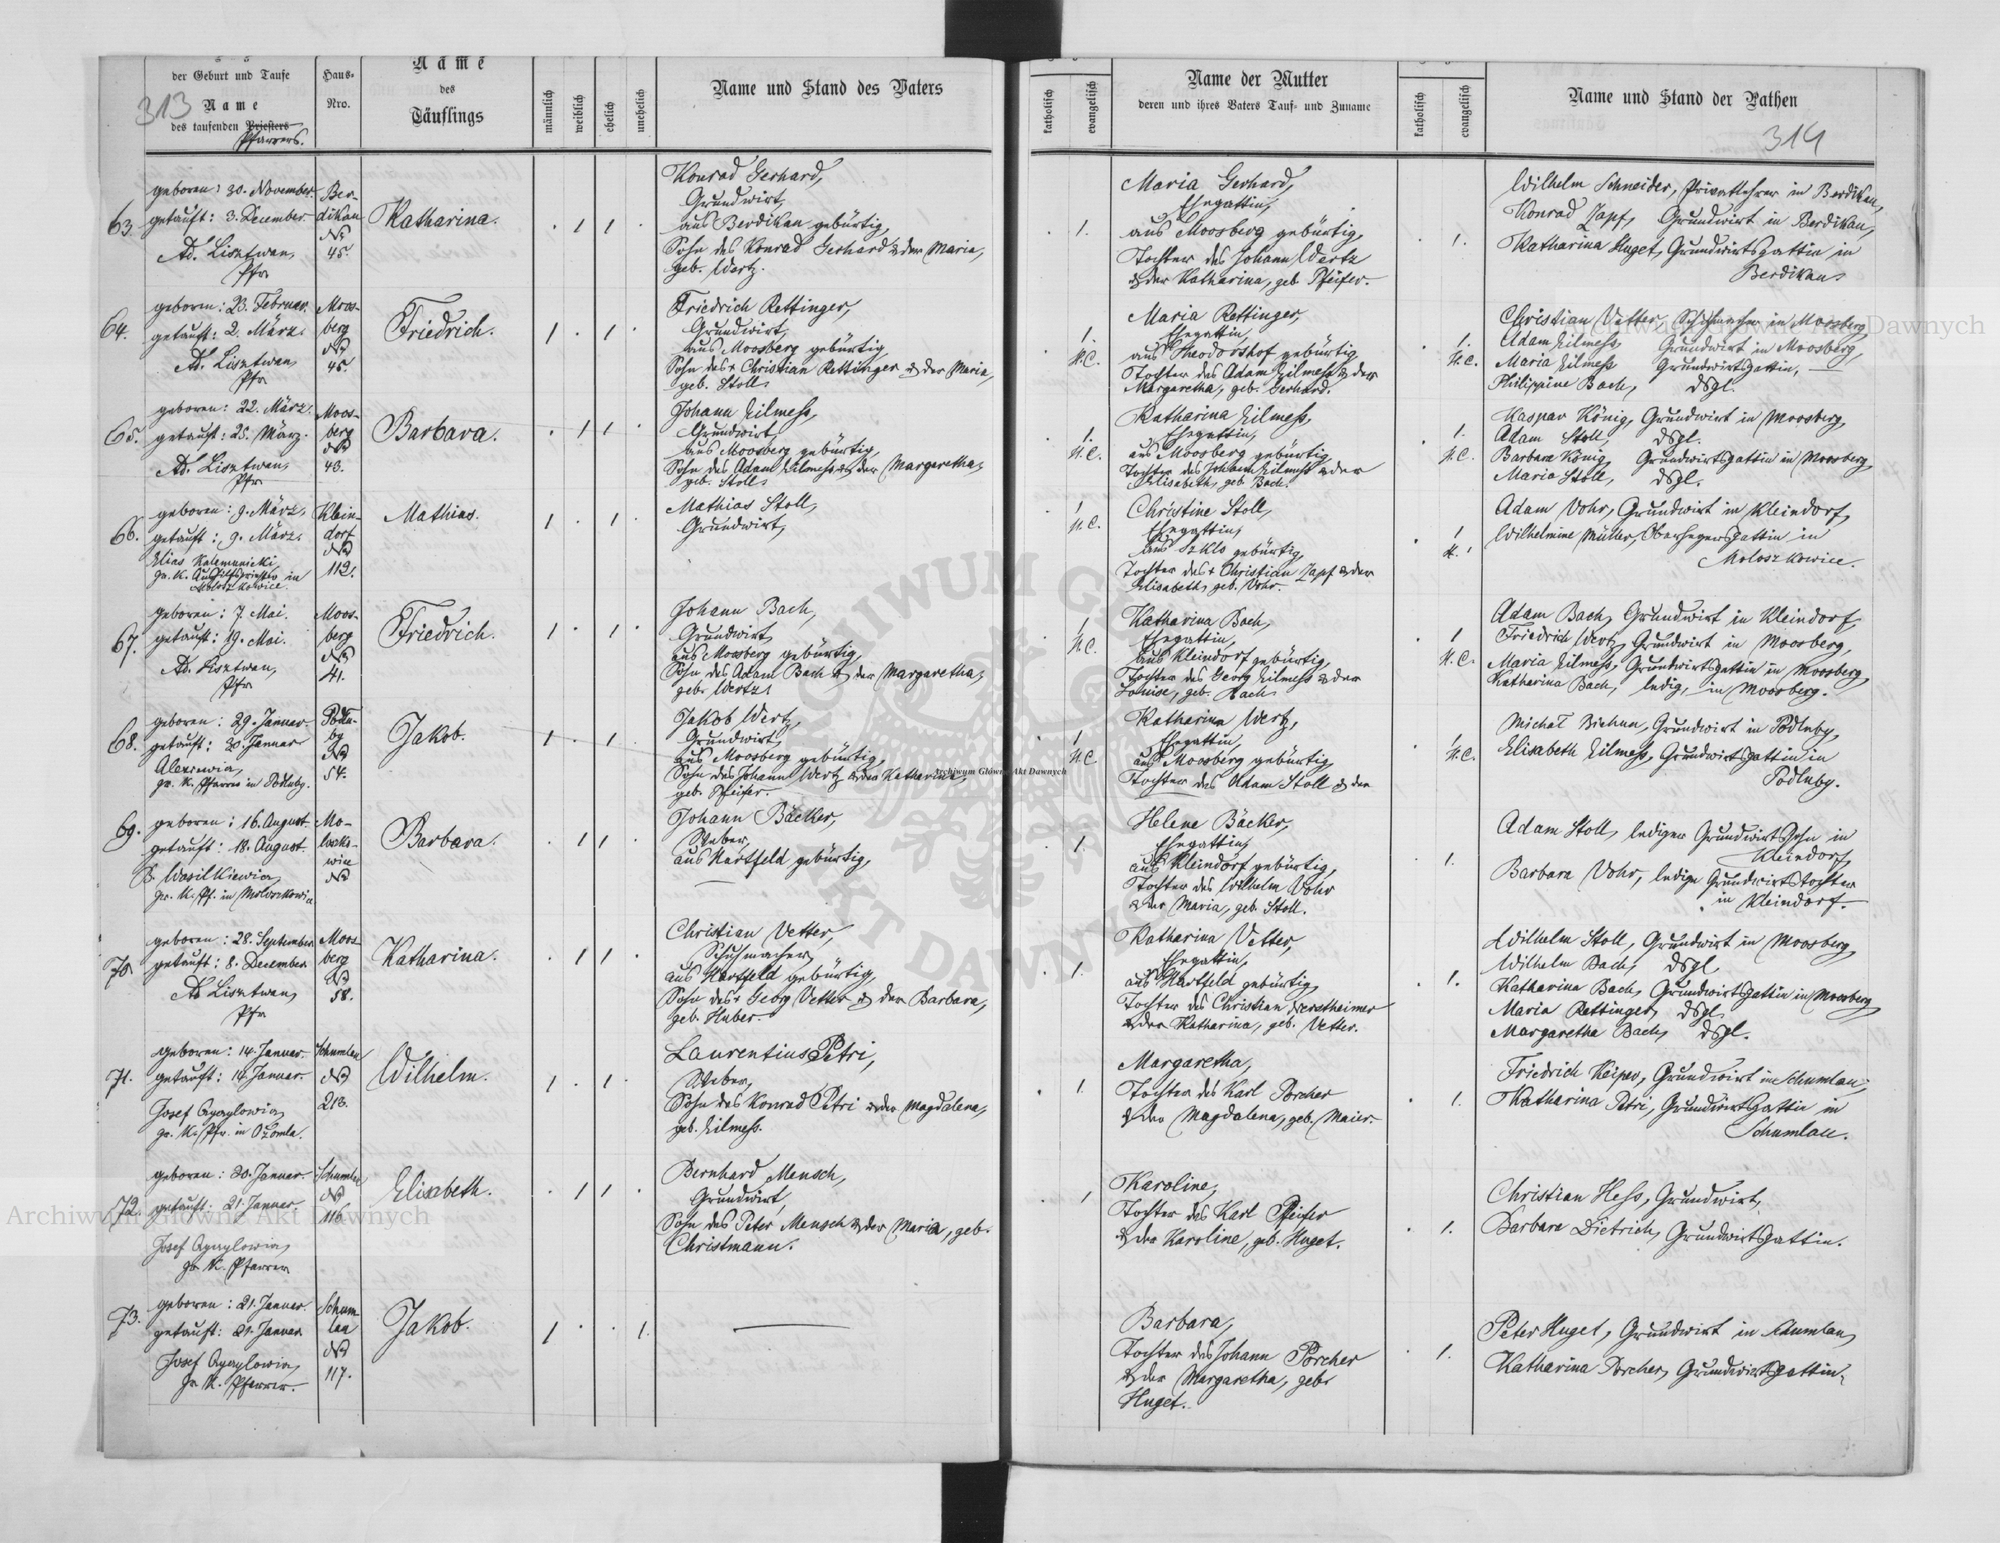 313
der Geburt und Taufe
Name
des taufenden Priesters
Pfarrers.
Haus-
Nro.
Name
des
Täuflings
männlich
weiblich
ehelich
unehelich
Name und Stand des Vaters
katholisch
evangelisch
Name der Mutter
deren und ihres Vaters Tauf- und Zuname
katholisch
evangelisch
Name und Stand der Pathen
314
63.
geboren: 30. November
getauft: 3. December
Ad. Lisztwan,
Pfr
Ber-
dikau
No
45.
Katharina.
Konrad Gerhard,
Grundwirt,
aus Berdikau gebürtig,
Sohn des Konrad Gerhard & der Maria,
geb. Wertz.
1.
Maria Gerhard,
Ehegattin,
aus Moosberg gebürtig,
Tochter des Johann Wertz
& der Katharina, geb. Pfeifer.
1.
Wilhelm Schneider, Privatlehrer in Berdikau,
Konrad Zapf, Grundwirt in Berdikau,
Katharina Huget, Grundwirtsgattin in
Berdikau.
64.
geboren: 23. Februar.
getauft: 2. März.
Ad. Lisztwan,
Pfr
Moos-
berg
No
45.
Friedrich.
Friedrich Rettinger,
Grundwirt,
aus Moosberg gebürtig,
Sohn des + Christian Rettinger & der Maria,
geb. Stoll.
1.
H.C.
Maria Rettinger,
Ehegattin,
aus Theodorshof gebürtig,
Tochter des Adam Zilmess & der
Margaretha, geb. Gerhard.
1.
H.C.
Christian Vetter, Schuhmacher in Moosberg,
Adam Zilmess, Grundwirt in Moosberg,
Maria Zilmess Grundwirtsgattin,
Philippine Bach, dsgl.
65.
geboren: 22. März.
getauft: 25. März.
Ad. Lisztwan,
Pfr
Moos-
berg
No
43.
Barbara.
Johann Zilmess,
Grundwirt,
aus Moosberg gebürtig,
Sohn des Adam Zilmess & der Margaretha,
geb. Stoll.
1.
H.C.
Katharina Zilmess,
Ehegattin,
aus Moosberg gebürtig,
Tochter des Johann Zilmess & der
Elisabeth, geb. Bach.
1.
H.C.
Kaspar König, Grundwirt in Moosberg,
Adam Stoll, dsgl.
Barbara König, Grundwirtsgattin in Moosberg,
Maria Stoll, dsgl.
66.
geboren: 9. März,
getauft: 9. März.
gr. K. Aushilfspriester in
Klein-
dorf
No
112.
Mathias.
Mathias Stoll,
Grundwirt,
1
H.C.
Christine Stoll,
Ehegattin,
aus Szklo gebürtig,
Tochter des + Christian Zapf & der
Elisabeth, geb. Vohr.
1
Adam Vohr, Grundwirt in Kleindorf,
Wilhelmine Müller, Oberhegersgattin in
Moloszkowice.
67.
geboren: 7. Mai.
getauft: 19. Mai.
Ad. Lisztwan,
Pfr
Moos-
berg
No
41.
Friedrich.
Johann Bach,
Grundwirt,
aus Moosberg gebürtig,
Sohn des Adam Bach & der Margaretha,
geb. Wertz.
1
H.C.
Katharina Bach,
Ehegattin,
aus Kleindorf gebürtig,
Tochter des Georg Zilmess & der
Louise, geb. Bach.
1
H.C.
Adam Bach, Grundwirt in Kleindorf,
Friedrich Wertz, Grundwirt in Moosberg,
Maria Zilmess, Grundwirtsgattin in Moosberg,
Katharina Bach, ledig, in Moosberg.
68.
geboren: 29. Januar.
getauft: 30. Januar
gr. K. Pfarrer in Podluby.
Podlu-
by
No
54.
Jakob.
Jakob Wertz,
Grundwirt,
aus Moosberg gebürtig,
Sohn des Johann Wertz & der Katharina,
geb. Pfeifer.
1
H.C.
Katharina Wertz,
Ehegattin,
aus Moosberg gebürtig,
Tochter des Adam Stoll & der
1
H.C.
Michał Grundwirt in Podluby,
Elisabeth Zilmess, Grundwirtsgattin in
Podluby.
69.
geboren: 16. August
getauft: 18. August
gr. K. Pf. in
Mo-
No
Barbara.
Johann Bäcker,
Weber,
aus Hartfeld gebürtig,
1.
Helene Bäcker,
Ehegattin,
aus Kleindorf gebürtig,
Tochter des Wilhelm Vohr
& der Maria, geb. Stoll.
1.
Adam Stoll, lediger Grundwirtssohn in
Kleindorf,
Barbara Vohr, ledige Grundwirtstochter
in Kleindorf.
70.
geboren: 28. September
getauft: 8. December
Ad Lisztwan,
Pfr
Moos-
berg
No
58.
Katharina.
Christian Vetter,
Schuhmacher,
aus Hartfeld gebürtig,
Sohn des + Georg Vetter & der Barbara,
geb. Huber.
1.
Katharina Vetter,
Ehegattin,
aus Hartfeld gebürtig,
Tochter des Christian
& der Katharina, geb. Vetter.
1.
Wilhelm Stoll, Grundwirt in Moosberg,
Wilhelm Bach, dsgl
Katharina Bach, Grundwirtsgattin in Moosberg,
Maria Rettinger, dsgl
Margaretha Bach, dsgl.
71.
geboren: 14. Januar.
getauft: 14. Januar.
gr. K. Pfr. in
Schumlau
No
213.
Wilhelm.
Laurentius Petri,
Weber,
Sohn des Konrad Petri & der Magdalena,
geb. Zilmess.
1
Margaretha,
Tochter des Karl Porcher
& der Magdalena, geb. Maier.
1.
Friedrich Keiper, Grundwirt in Schumlau,
Katharina Petri, Grundwirtsgattin in
Schumlau.
72.
geboren: 20. Januar.
getauft: 21. Januar.
gr. K. Pfarrer
Schumlau
No
116.
Elisabeth.
Bernhard Mensch,
Grundwirt,
Sohn des Peter Mensch & der Maria, geb.
Christmann.
1
Karoline,
Tochter des Karl Pfeifer
& der Karoline, geb. Huget.
1.
Christian Hess, Grundwirt,
Barbara Dietrich, Grundwirtsgattin.
73.
geboren: 21. Januar.
getauft: 21. Januar
gr. K. Pfarrer.
Schum-
lau
No
117.
Jakob.
Barbara,
Tochter des Johann Porcher
& der Margaretha, geb.
Huget.
1.
Peter Huget, Grundwirt in Schumlau,
Katharina Porcher, Grundwirtsgattin.
Archiwum Główne Akt Dawnych
Archiwum Główne Akt Dawnych
Archiwum Główne Akt Dawnych
ARCHIWUM GŁÓWNE AKT DAWNYCH